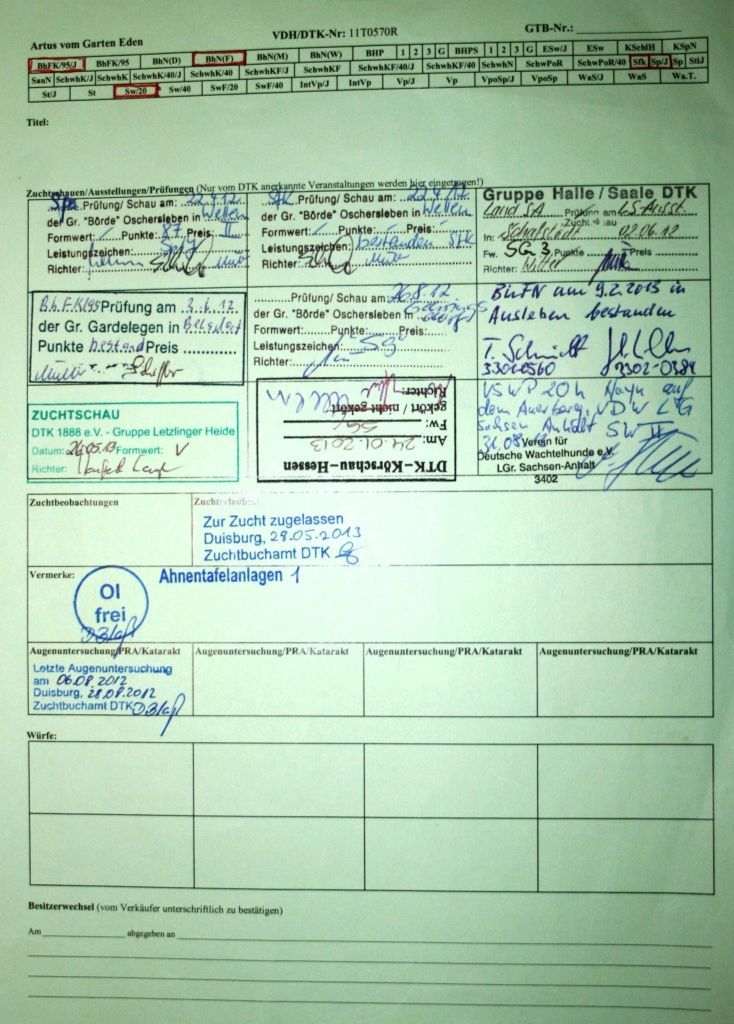 Artus vom Garten Eden
VDH/DTK-Nr: 11T0570R
GTB-Nr.:
BhFK/95/J BhFK/95 BhN(D) BhN(F) BhN(M) BhN(W) BHP 1 2 3 G BHPS 1 2 3 G ESw/J ESw KSchlH KSpN
SauN SchwhK/J SchwhK SchwhK/40/J SchwhK/40 SchwhKF/J SchwhKF SchwhKF/40/J SchwhKF/40 SchwhN SchwPoR SchwPoR/40 Sfk Sp/J Sp StiJ
St/J St Sw/20 Sw/40 SwF/20 SwF/40 IntVp/J IntVp Vp/J Vp VpoSp/J VpoSp WaS/J WaS Wa.T.
Titel:
Zuchtschauen/Ausstellungen/Prüfungen (Nur vom DTK anerkannte Veranstaltungen werden hier eingetragen!)
Prüfung/ Schau am: 22.4.12
der Gr. "Börde" Oschersleben in Wellen
Formwert: Punkte: 87 Preis: II
Leistungszeichen:
Richter:
Prüfung/ Schau am: 22.4.12
der Gr. "Börde" Oschersleben in Wellen
Formwert: Punkte: Preis:
Leistungszeichen: bestanden Sfk
Richter:
Gruppe Halle/Saale DTK
Land SA Prüfung am LS-Ausst.
Zuchtschau
In: Schafstädt 02.06.12
Fw. SG 3 Punkte Preis
Richter:
BhFK/95 Prüfung am 2.6.12
der Gr. Gardelegen in
Punkte bestand Preis
Müller
Prüfung/ Schau am: 26.8.12
der Gr. "Börde" Oschersleben in
Formwert: Punkte: Preis:
Leistungszeichen: Sg
Richter:
BhFN am 9.2.2013 in
Ausleben bestanden
T. Schmidt
ZUCHTSCHAU
DTK 1888 e.V. - Gruppe Letzlinger Heide
Datum: 26.05.13 Formwert: V
Richter:
DTK-Körschau-Hessen
Am: 24.01.2013
Fw: SG
gekört / nicht gekört
Richter:
VSWP 20h Hayn auf
dem Auerberg, VDW LG
Sachsen Anhalt SW II
Verein für
Deutsche Wachtelhunde e.V.
LGr. Sachsen-Anhalt
3402
Zuchtbeobachtungen
Zur Zucht zugelassen
Duisburg, 29.05.2013
Zuchtbuchamt DTK
Vermerke:
OI
frei
Ahnentafelanlagen 1
Augenuntersuchung/PRA/Katarakt Augenuntersuchung/PRA/Katarakt Augenuntersuchung/PRA/Katarakt Augenuntersuchung/PRA/Katarakt
Letzte Augenuntersuchung
am 06.08.2012
Duisburg, 28.08.2012
Zuchtbuchamt DTK
Würfe:
Besitzerwechsel (vom Verkäufer unterschriftlich zu bestätigen)
Am abgegeben an